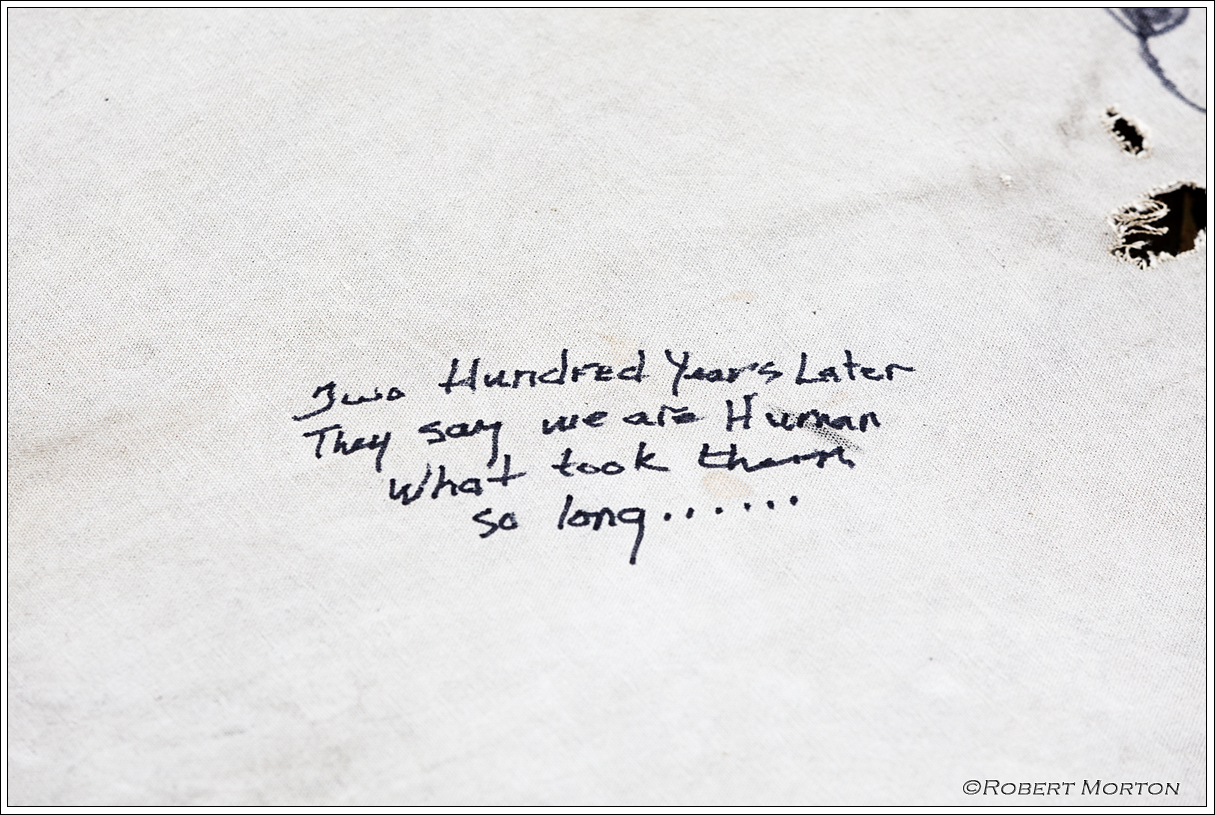 Two Hundred Years Later
They say we are Human
What took them
so long......
©Robert Morton